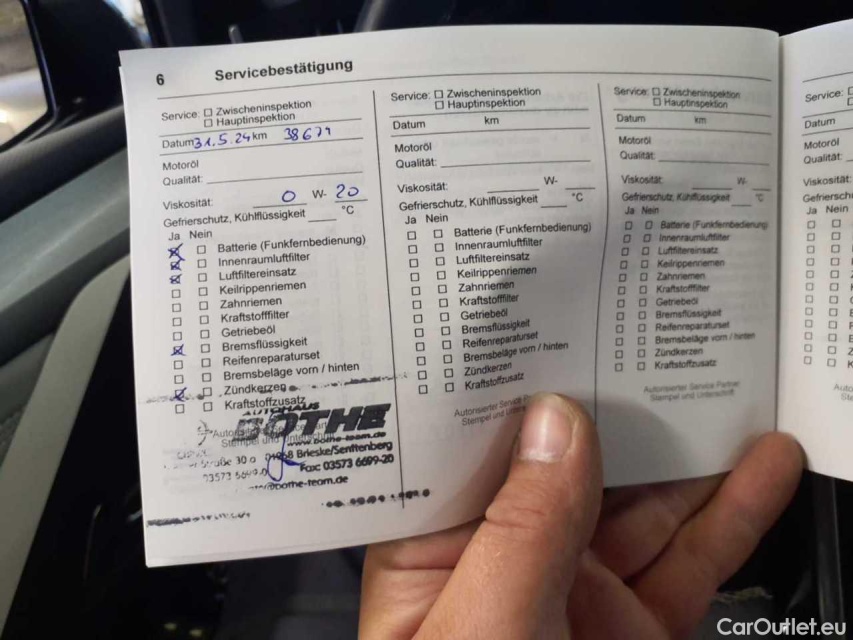 6 Servicebestätigung
Service: ☐ Zwischeninspektion
☐ Hauptinspektion
Datum 31.5.24 km 38671
Motoröl
Qualität:
Viskosität: 0 W- 20
Gefrierschutz, Kühlflüssigkeit °C
Ja Nein
Batterie (Funkfernbedienung)
Innenraumluftfilter
Luftfiltereinsatz
Keilrippenriemen
Zahnriemen
Kraftstofffilter
Getriebeöl
Bremsflüssigkeit
Reifenreparaturset
Bremsbeläge vorn / hinten
Zündkerzen
Kraftstoffzusatz
AUTOHAUS
BOTHE
www.bothe-team.de
Brieske/Senftenberg
Fax: 03573 6699-20
bothe-team.de
Service: ☐ Zwischeninspektion
☐ Hauptinspektion
Datum km
Motoröl
Qualität:
Viskosität: W-
Gefrierschutz, Kühlflüssigkeit °C
Ja Nein
Batterie (Funkfernbedienung)
Innenraumluftfilter
Luftfiltereinsatz
Keilrippenriemen
Zahnriemen
Kraftstofffilter
Getriebeöl
Bremsflüssigkeit
Reifenreparaturset
Bremsbeläge vorn / hinten
Zündkerzen
Kraftstoffzusatz
Autorisierter Service
Stempel und
Service: ☐ Zwischeninspektion
☐ Hauptinspektion
Datum km
Motoröl
Qualität:
Viskosität: W-
Gefrierschutz, Kühlflüssigkeit °C
Ja Nein
Batterie (Funkfernbedienung)
Innenraumluftfilter
Luftfiltereinsatz
Keilrippenriemen
Zahnriemen
Kraftstofffilter
Getriebeöl
Bremsflüssigkeit
Reifenreparaturset
Bremsbeläge vorn / hinten
Zündkerzen
Kraftstoffzusatz
Autorisierter Service Partner
Stempel und Unterschrift
Service:
Datum
Motoröl
Qualität:
Viskosität:
Ja Nein
CarOutlet.eu